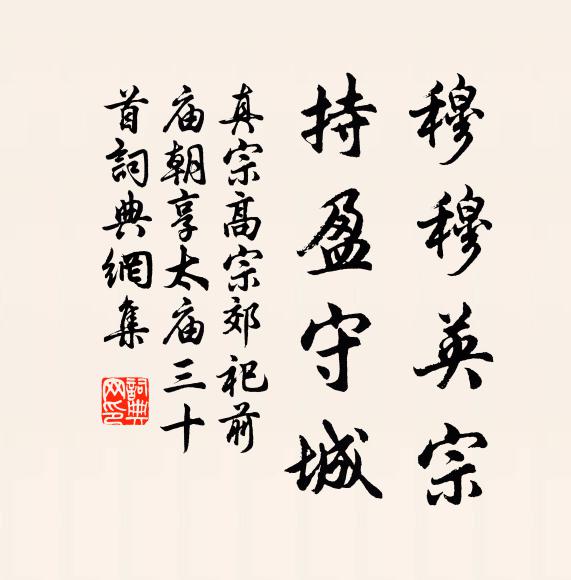 穆穆英宗
持盈守城
真宗高宗郊祀前
庙朝享太庙三十
首詞典網集
詞典网印